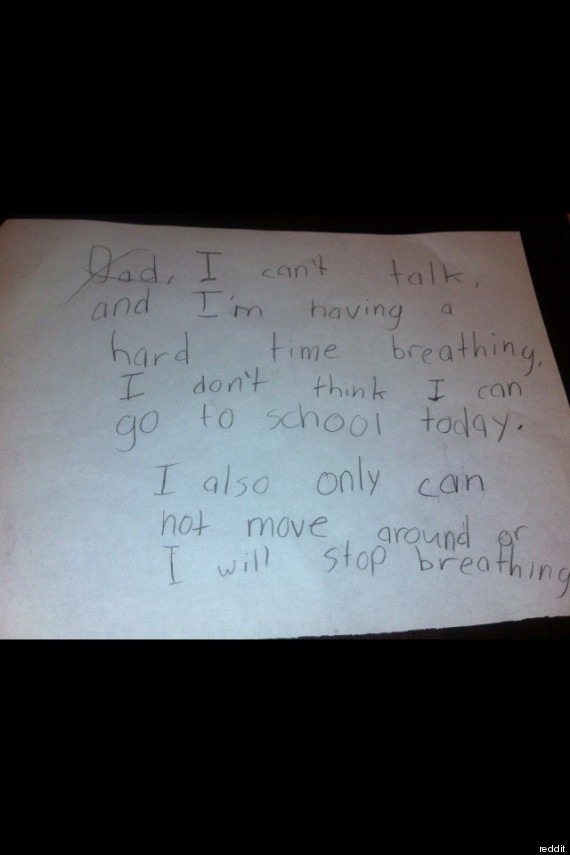 Dad, I can't talk,
and I'm having a
hard time breathing.
I don't think I can
go to school today.
I also only can
not move around or
I will stop breathing
reddit